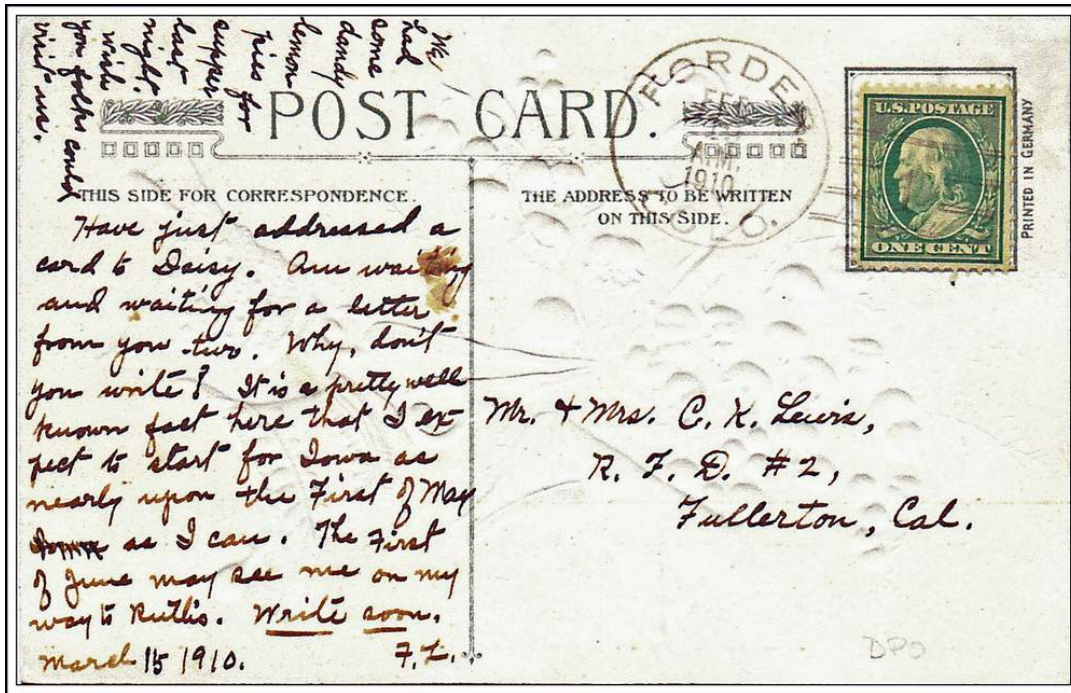 We
had
some
dandy
lemon
pies for
supper
last
night.
wish
you folks could
visit us.
POST CARD.
THIS SIDE FOR CORRESPONDENCE.
THE ADDRESS TO BE WRITTEN
ON THIS SIDE.
FORDER
A.M.
1910
COLO.
U.S. POSTAGE
ONE CENT
PRINTED IN GERMANY
Have just addressed a
card to Daisy. Am waiting
and waiting for a letter
from you two. Why, don't
you write? It is a pretty well
known fact here that I ex
pect to start for Iowa as
nearly upon the First of May
as I can. The First
of June may see me on my
way to Ruth's. Write soon.
March 15 1910. F.L.
Mr. & Mrs. C. K. Lewis,
R. F. D. #2,
Fullerton, Cal.
DPO